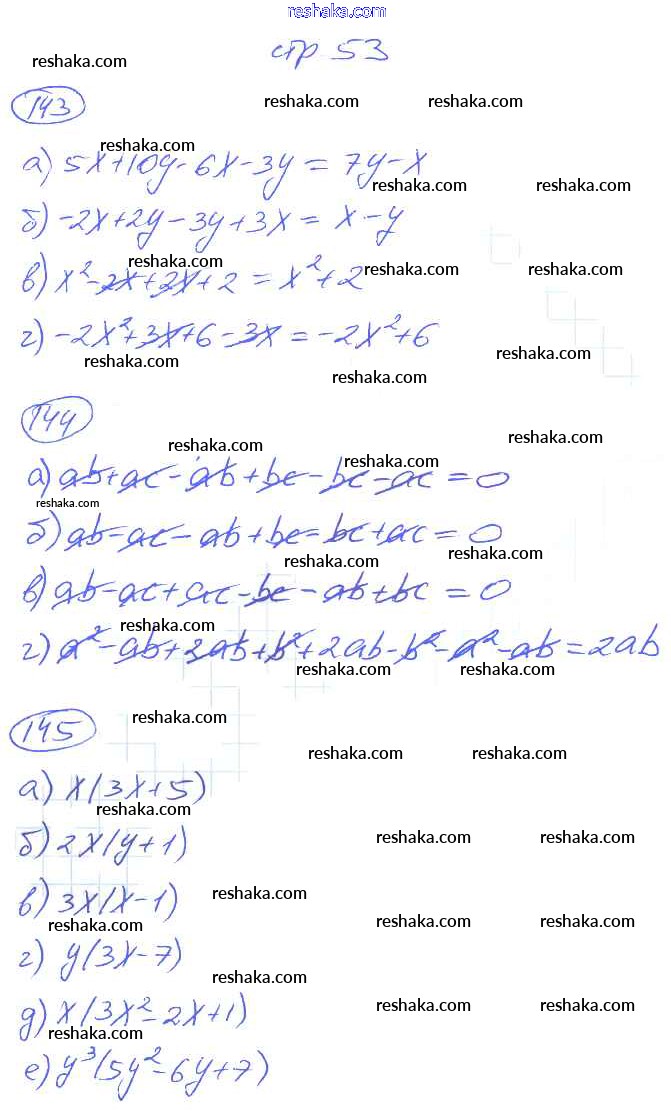 reshaka.com
стр 53
reshaka.com
143
reshaka.com reshaka.com
reshaka.com
а) 5x+10y-6x-3y = 7y-x
reshaka.com reshaka.com
б) -2x+2y-3y+3x = x-y
reshaka.com
в) x²-2x+2x+2 = x²+2
reshaka.com reshaka.com
г) -2x²+3x+6-3x = -2x²+6
reshaka.com reshaka.com
reshaka.com
144
reshaka.com reshaka.com
reshaka.com
а) ab+ac-ab+bc-bc-ac = 0
reshaka.com
б) ab-ac-ab+bc-bc+ac = 0
reshaka.com reshaka.com
в) ab-ac+ac-bc-ab+bc = 0
reshaka.com
г) a²-ab+2ab+b²+2ab-b²-a²-ab = 2ab
reshaka.com reshaka.com
145
reshaka.com
reshaka.com reshaka.com
а) x(3x+5)
reshaka.com
б) 2x(y+1)
reshaka.com reshaka.com
в) 3x(x-1)
reshaka.com
reshaka.com reshaka.com reshaka.com
г) y(3x-7)
reshaka.com
д) x(3x²-2x+1)
reshaka.com reshaka.com reshaka.com
е) y³(5y²-6y+7)